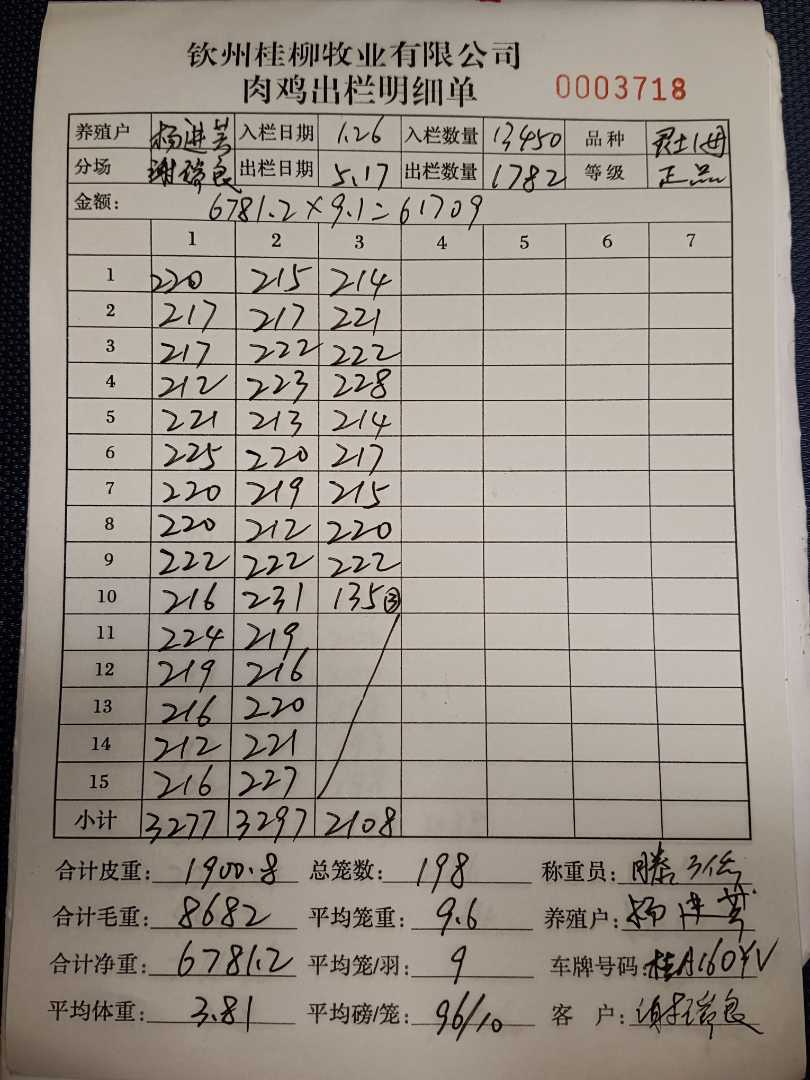 钦州桂柳牧业有限公司
肉鸡出栏明细单 0003718
养殖户 杨进芳 入栏日期 1.26 入栏数量 13450 品种
分场 谢瑞良 出栏日期 5.17 出栏数量 1782 等级 正品
金额: 6781.2×9.1=61709
1 2 3 4 5 6 7
1 220 215 214
2 217 217 221
3 217 222 222
4 212 223 228
5 221 213 214
6 225 220 217
7 220 219 215
8 220 212 220
9 222 222 222
10 216 231 135③
11 224 219
12 219 216
13 216 220
14 212 221
15 216 227
小计 3277 3297 2108
合计皮重: 1900.8 总笼数: 198 称重员:
合计毛重: 8682 平均笼重: 9.6 养殖户: 杨进芳
合计净重: 6781.2 平均笼/羽: 9 车牌号码: 桂A160YV
平均体重: 3.81 平均磅/笼: 96/10 客 户: 谢瑞良